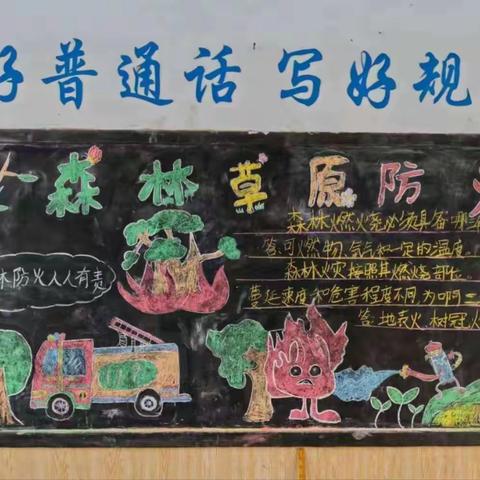 好普通话 写好规
森林草原防火
林防火人人有责
森林燃火烧必须具备哪
答:可燃物,氧气和一定的温度
森林火灾按照其燃烧部位
蔓延速度和危害程度不同为啊
答:地表火 树冠火